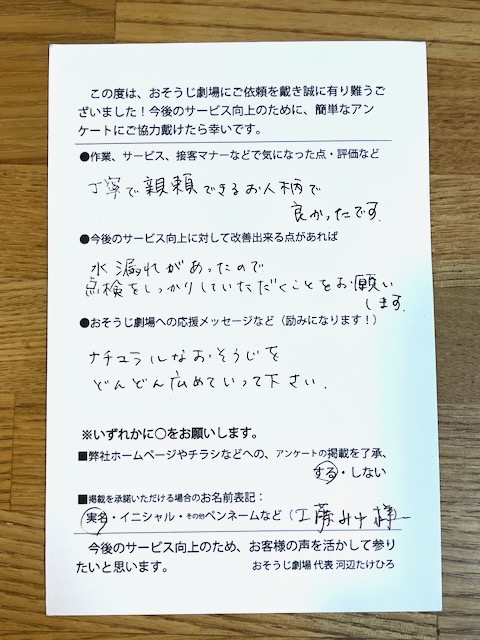 この度は、おそうじ劇場にご依頼を戴き誠に有り難うご
ざいました!今後のサービス向上のために、簡単なアン
ケートにご協力戴けたら幸いです。
●作業、サービス、接客マナーなどで気になった点・評価など
丁寧で親頼できるお人柄で
良かったです。
●今後のサービス向上に対して改善出来る点があれば
水漏れがあったので
点検をしっかりしていただくことをお願い
します。
●おそうじ劇場への応援メッセージなど(励みになります!)
ナチュラルなおそうじを
どんどん広めていって下さい.
※いずれかに○をお願いします。
■弊社ホームページやチラシなどへの、アンケートの掲載を了承、
する・しない
■掲載を承諾いただける場合のお名前表記:
実名・イニシャル・その他ペンネームなど(工藤 様)
今後のサービス向上のため、お客様の声を活かして参り
たいと思います。
おそうじ劇場 代表 河辺たけひろ